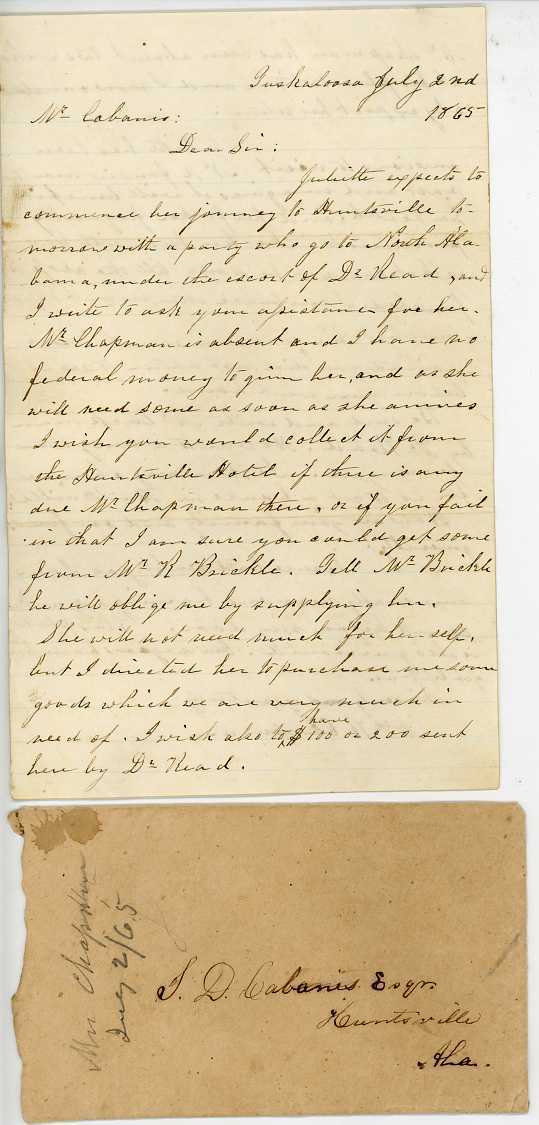 Tuskaloosa July 2nd
1865
Mr Cabanis:
Dear Sir:
Juliette expects to
commence her journey to Huntsville to-
morrow with a party who go to North Ala-
bama, under the escort of Dr Read, and
I write to ask your assistance for her.
Mr Chapman is absent and I have no
federal money to give her, and as she
will need some as soon as she arrives
I wish you would collect it from
the Huntsville Hotel if there is any
due Mr Chapman there, or if you fail
in that I am sure you could get some
from Mr R Brickle. Tell Mr Brickle
he will oblige me by supplying her.
She will not need much for herself,
but I directed her to purchase me some
goods which we are very much in
need of. I wish also to have $100 or 200 sent
here by Dr Read.
Mrs Chapman
July 2/65
S. D. Cabanis Esqr.
Huntsville
Ala.